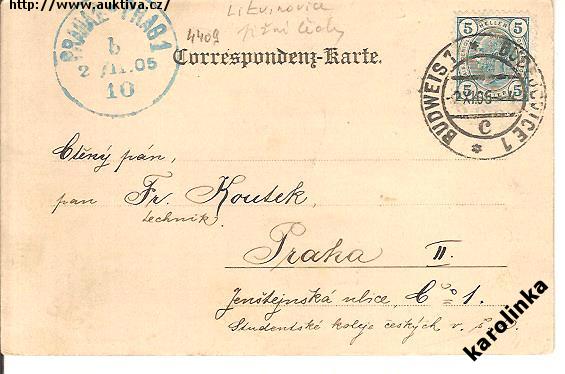 http://www.auktiva.cz
PRAHA 1 PRAG 1
b
2/XI.05
10
4409
Litvinovice
jižní Čechy
Correspondenz-Karte.
5 HELLER 5
5 5
BUDWEIS 1 * BUDĚJOVICE 1 *
2 XI 05
c
Ctěný pán,
pan Fr. Koutek,
technik
Praha II.
Jenštejnská ulice, č. 1.
Studentské koleje českých v. š.
karolinka